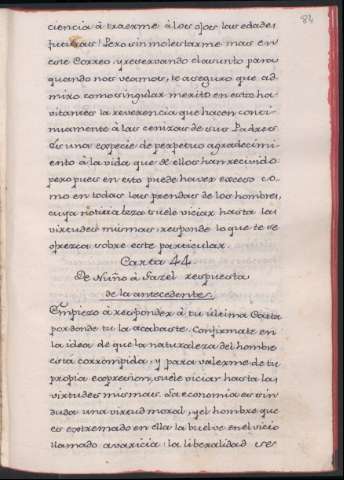 84
ciencia à traerme à los ojos las edades
futuras! Pero sin molestarme mas en
este Correo, y reservando el asunto para
quando nos veamos, te aseguro que ad-
miro como singular merito en estos ha-
vitantes la reverencia que hacen conti-
nuamente à las cenizas de sus Padres.
Es una especie de perpetuo agradecimi-
ento à la vida que de ellos han recivido
pero pues en esto puede haver exceso co-
mo en todas las prendas de los hombres,
cuya naturaleza suele viciar hasta las
virtudes mismas, responde lo que te se
ofrezca sobre este particular.
Carta 44
De Nuño à Gazel respuesta
de la antecedente.
Empiezo à responder à tu ultima Carta
por donde tu la acabaste. Confirmate en
la idea de que la naturaleza del hombre
està corrompida, y para valerme de tu
propia expresion, suele viciar hasta las
virtudes mismas. La economia es sin
duda una virtud moral, y el hombre que
es extremado en ella la buelve en el vicio
llamado avaricia: la liberalidad se